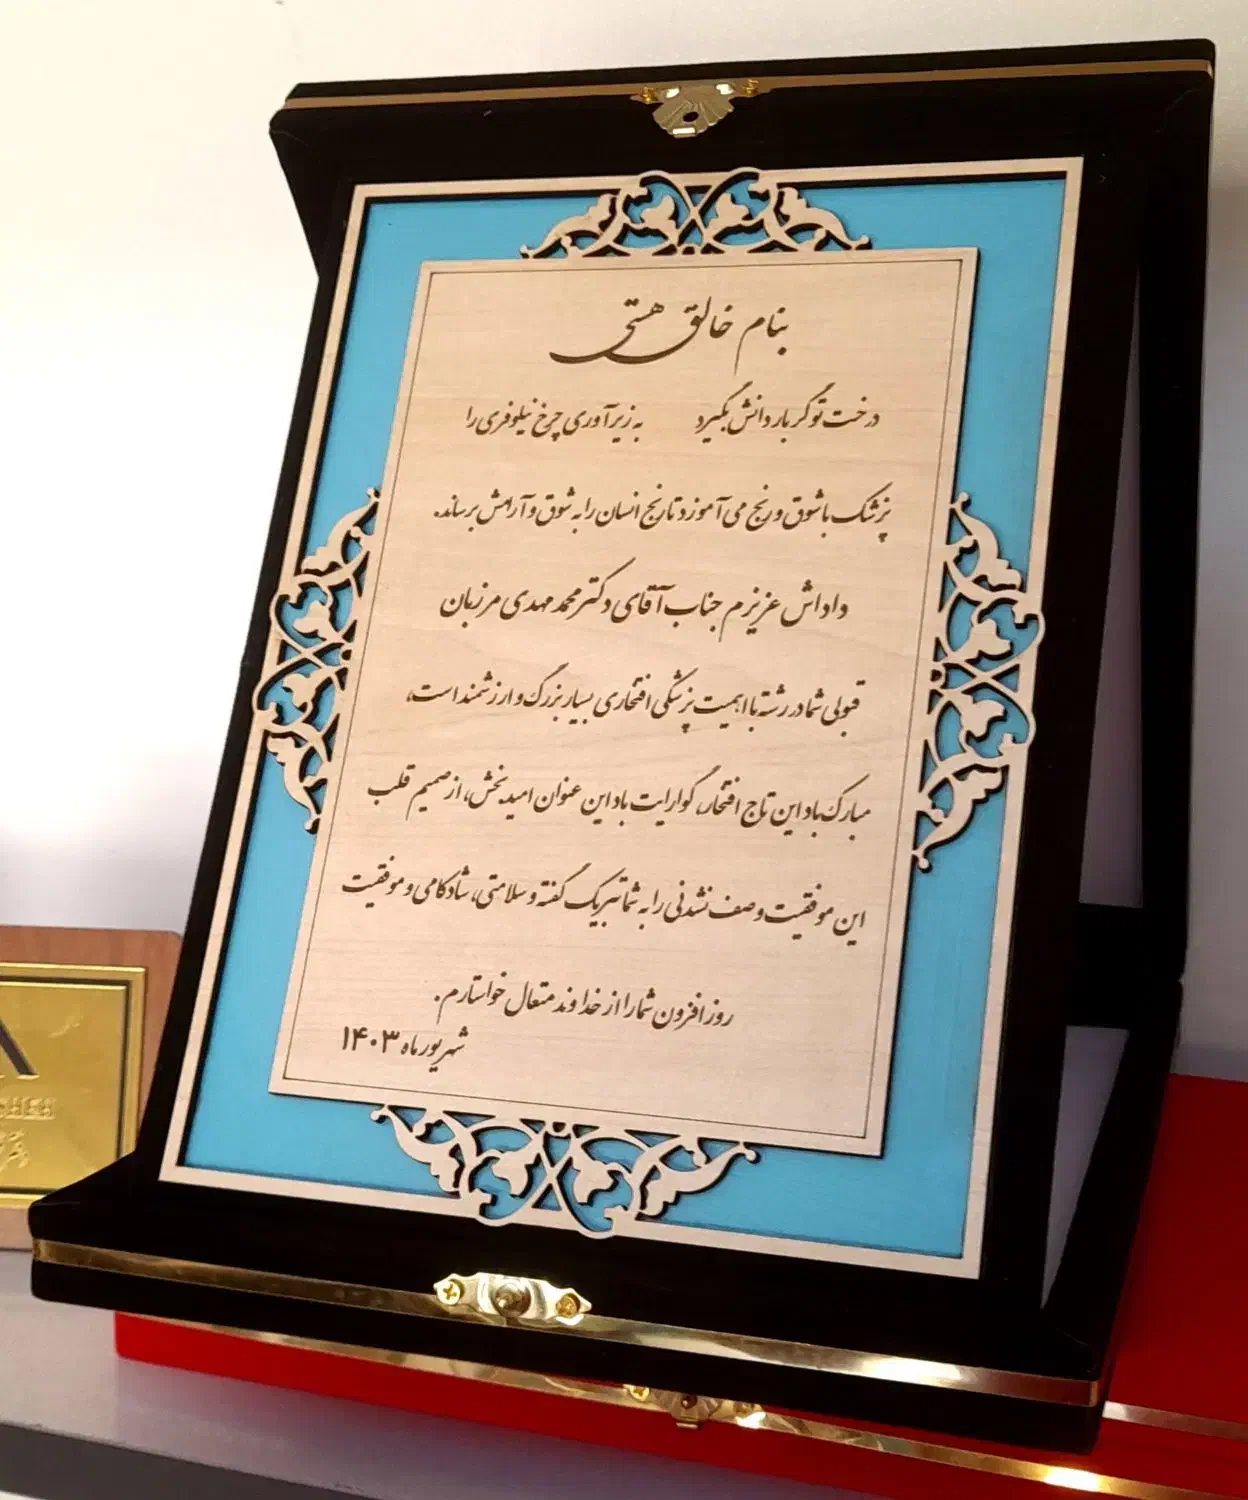 بنام خالق هستی
درخت تو گر بار دانش بگیرد به زیر آوری چرخ نیلوفری را
پزشک با شوق و رنج می آموزد تا رنج انسان را به شوق و آرامش برساند.
داداش عزیزم جناب آقای دکتر محمد مهدی مرزبان
قبولی شما در رشته با اهمیت پزشکی افتخاری بسیار بزرگ و ارزشمند است،
مبارک باد این تاج افتخار، گوارایت باد این عنوان امید بخش، از صمیم قلب
این موفقیت وصف نشدنی را به شما تبریک گفته و سلامتی، شادکامی و موفقیت
روز افزون شما را از خداوند متعال خواستارم.
شهریور ماه ۱۴۰۳